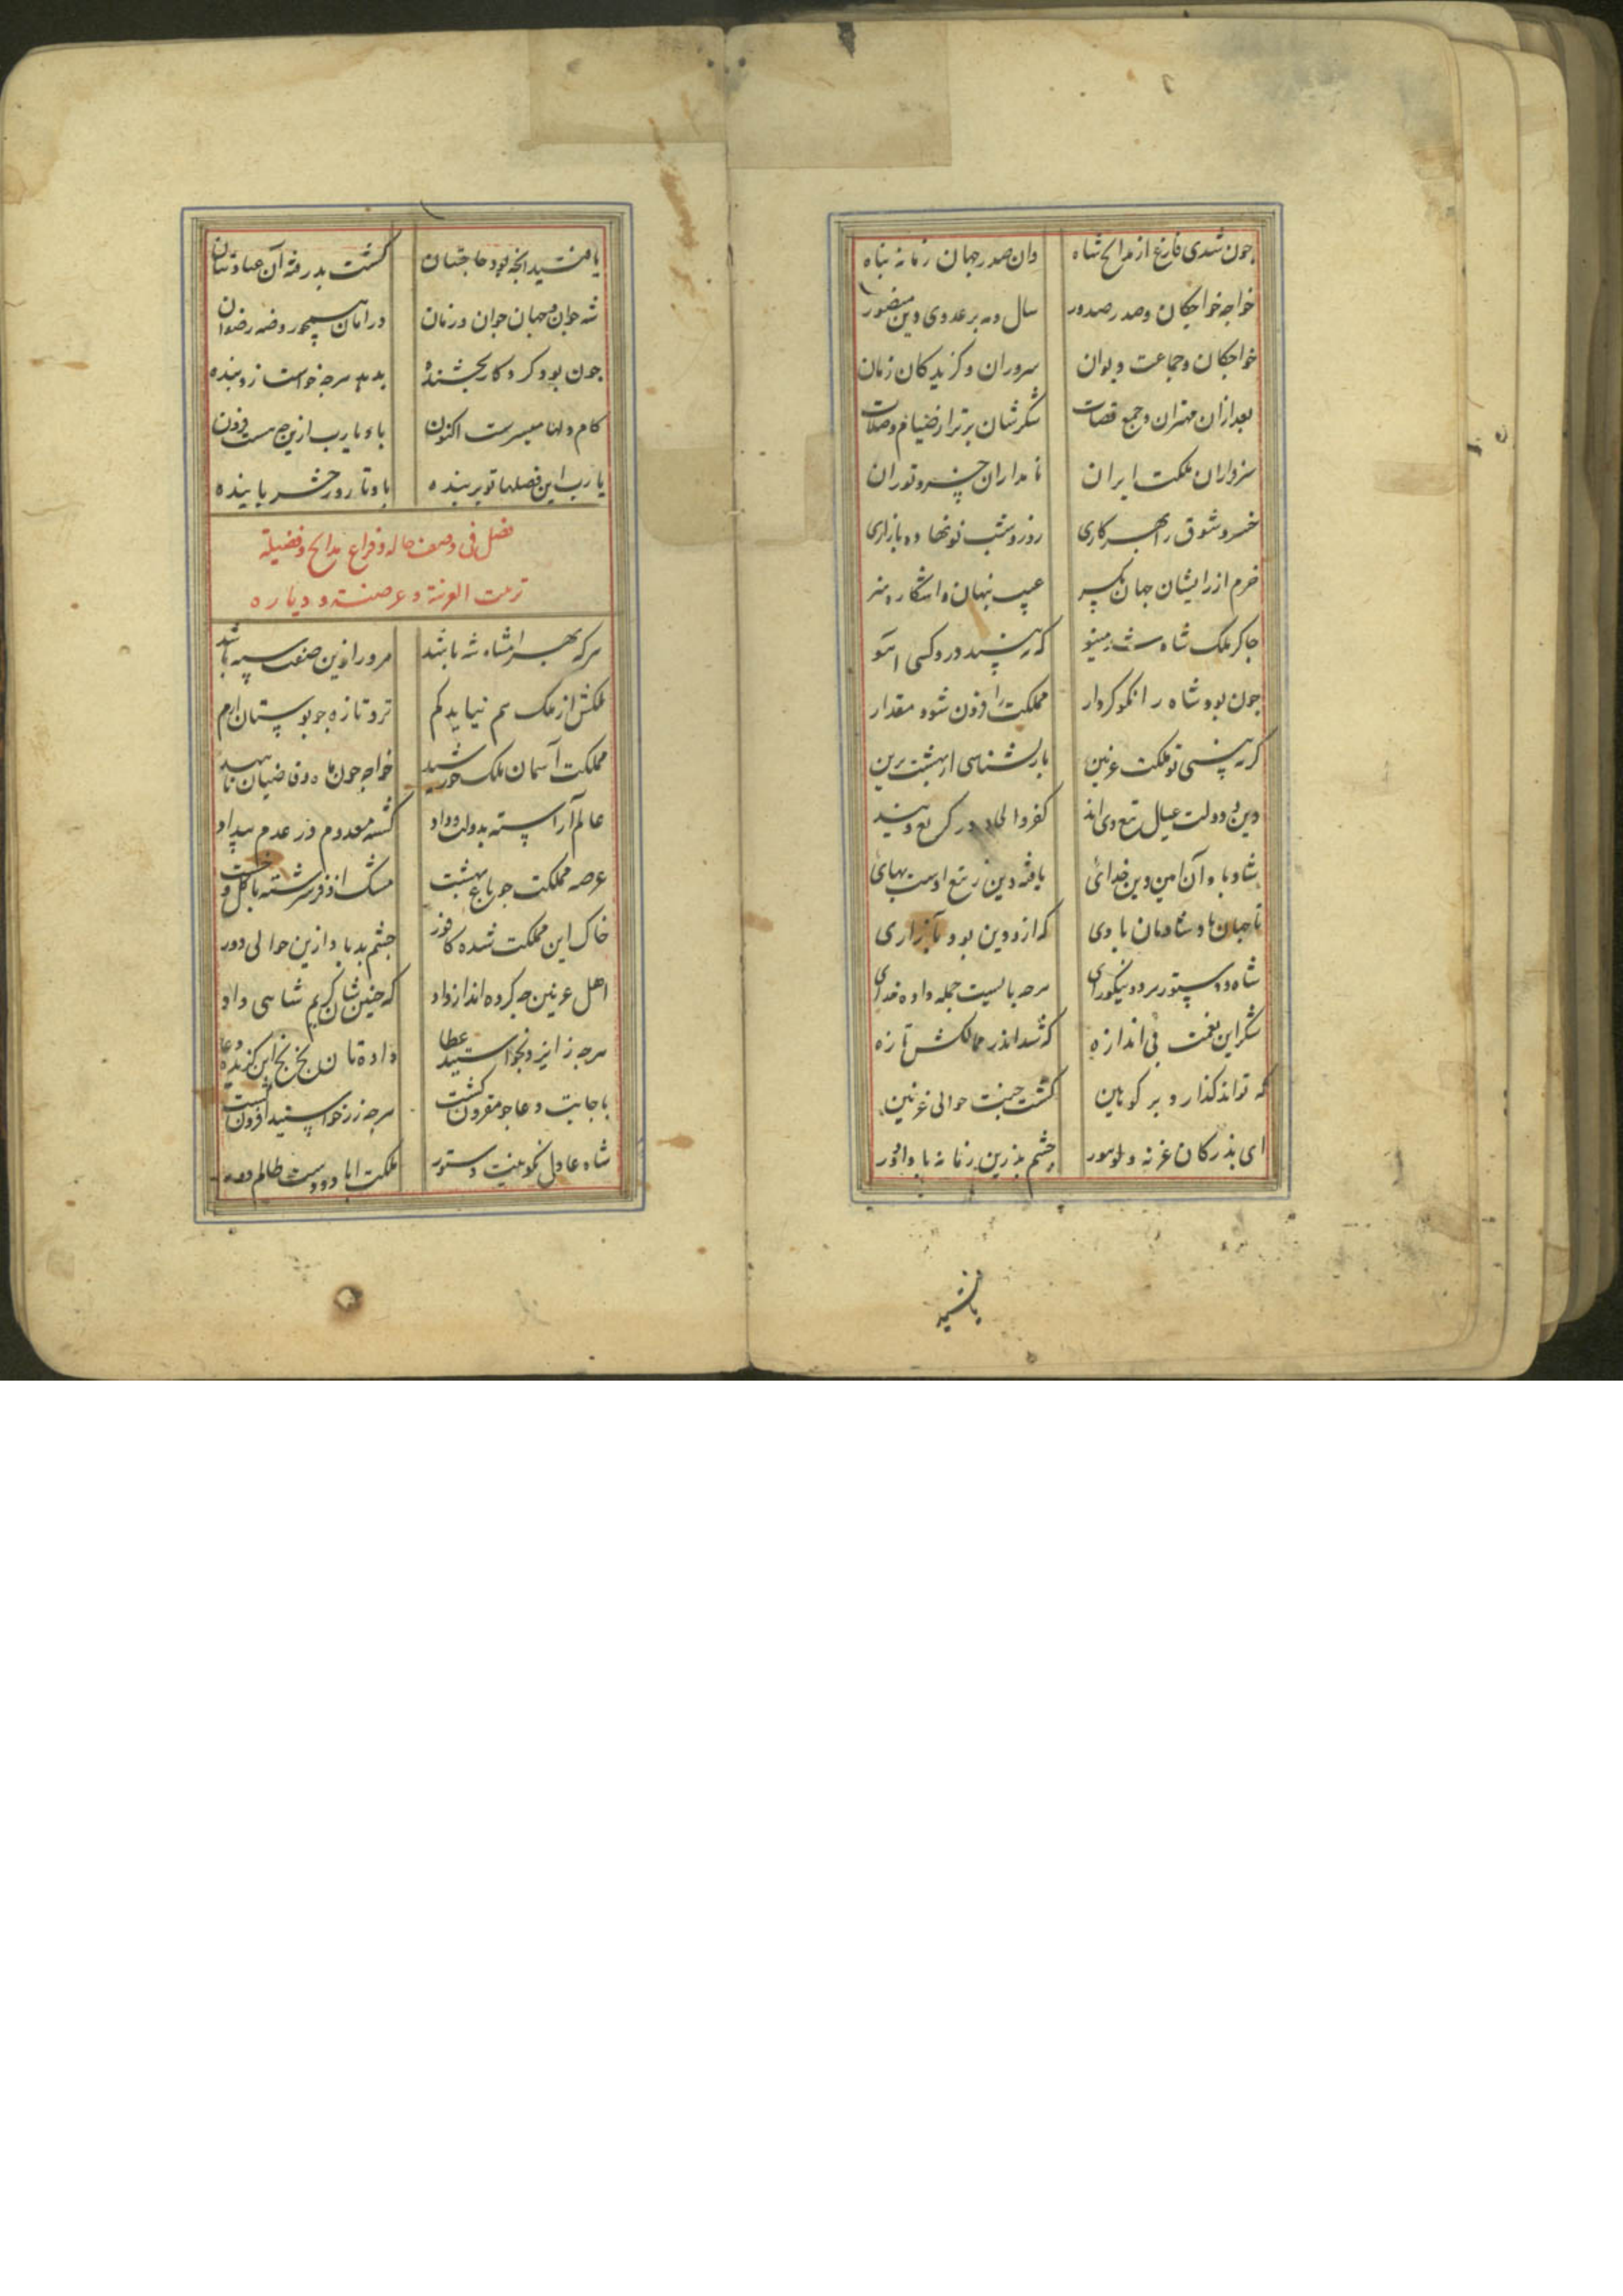 چون شدی فارغ از مدایح شاه	وان صدر جهان زمانه پناه
خواجه خواجکان وصدر صدور	سال ومه بر عدوی دین منصور
خواجکان وجماعت دیوان	سروران وکزیدکان زمان
بعد ازان مهتران وجمع قضات	شکرشان برتر از صیام وصلات
سرواران ملکت ایران	نامداران چین وتوران
خسرو شوق را بهر کاری	روز وشب نو نهاده بازاری
خرم از رایشان جهان یکسر	عیب پنهان واشکاره هنر
چاکر ملک شاه شد مینو	که نبیند درو کسی آهو
چون بود شاه را نکو کردار	مملکت را فزون شود مقدار
کر ببینی تو ملکت غزنین	باز نشناسی از بهشت برین
دین ودولت عیال تیغ وی اند	کفر والحاد در
شاد باد آن امین دین خدای	یافته دین ز تیغ اوست بهای
تا جهان باد شادمان بادی	که ازو دین بود بآزادی
شاه ودستور هر دو نیکورای	هرچه بایست جمله داده خدای
شکر این نعمت بی اندازه	که شد اندر ممالکش تازه
که تواند کذارد بر کو هین	کشت جنت حوالی غزنین
ای بذرکان غزنه ولوهور	چشم بد زین زمانه بادا دور
یافتید
یافتید انچه بود حاجتتان	کشت بدرقه آن عبادتتان
شه جوان وجهان جوان وزمان	در امان همچو روضه رضوان
چون بود کردکار بخشنده	بدهد هرچه خواست زو بنده
کام دلها میسرست اکنون	باد یارب ازین که هست فزون
یا رب این فصلها تو بر بنده	باد تا روز حشر پاینده
فصل فی وصف حاله وفراغ مدایح وفضیلة
تربت الغزنة وعرصته ودیاره
هرکه بهرامشاه شه باشد	مر ورا زین صفت سپه باشد
ملکش از ملک جم نیاید کم	تر وتازه چو بوستان ارم
مملکت آسمان ملک خورشید	خواجه چون ماه وقاضیان ناهید
عالم آراسته بدولت وداد	کشته معدوم در عدم بیداد
عرصه مملکت چو باغ بهشت	مشک اذفر سرشته با کل وخشت
خاک این مملکت شده کافور	چشم بد باد ازین حوالی دور
اهل غزنین چه کرده اند از داد	که چنین شان کریم شاهی داد
هرچه ز ایزد بخواستید عطا	داده تان بخ بخ این کزیده دعا
باجابت دعا چو مقرون کشت	هرچه زر خواستید افزون کشت
شاه عادل نکو نیت دستور	ملکت اباد ودست ظالم دور